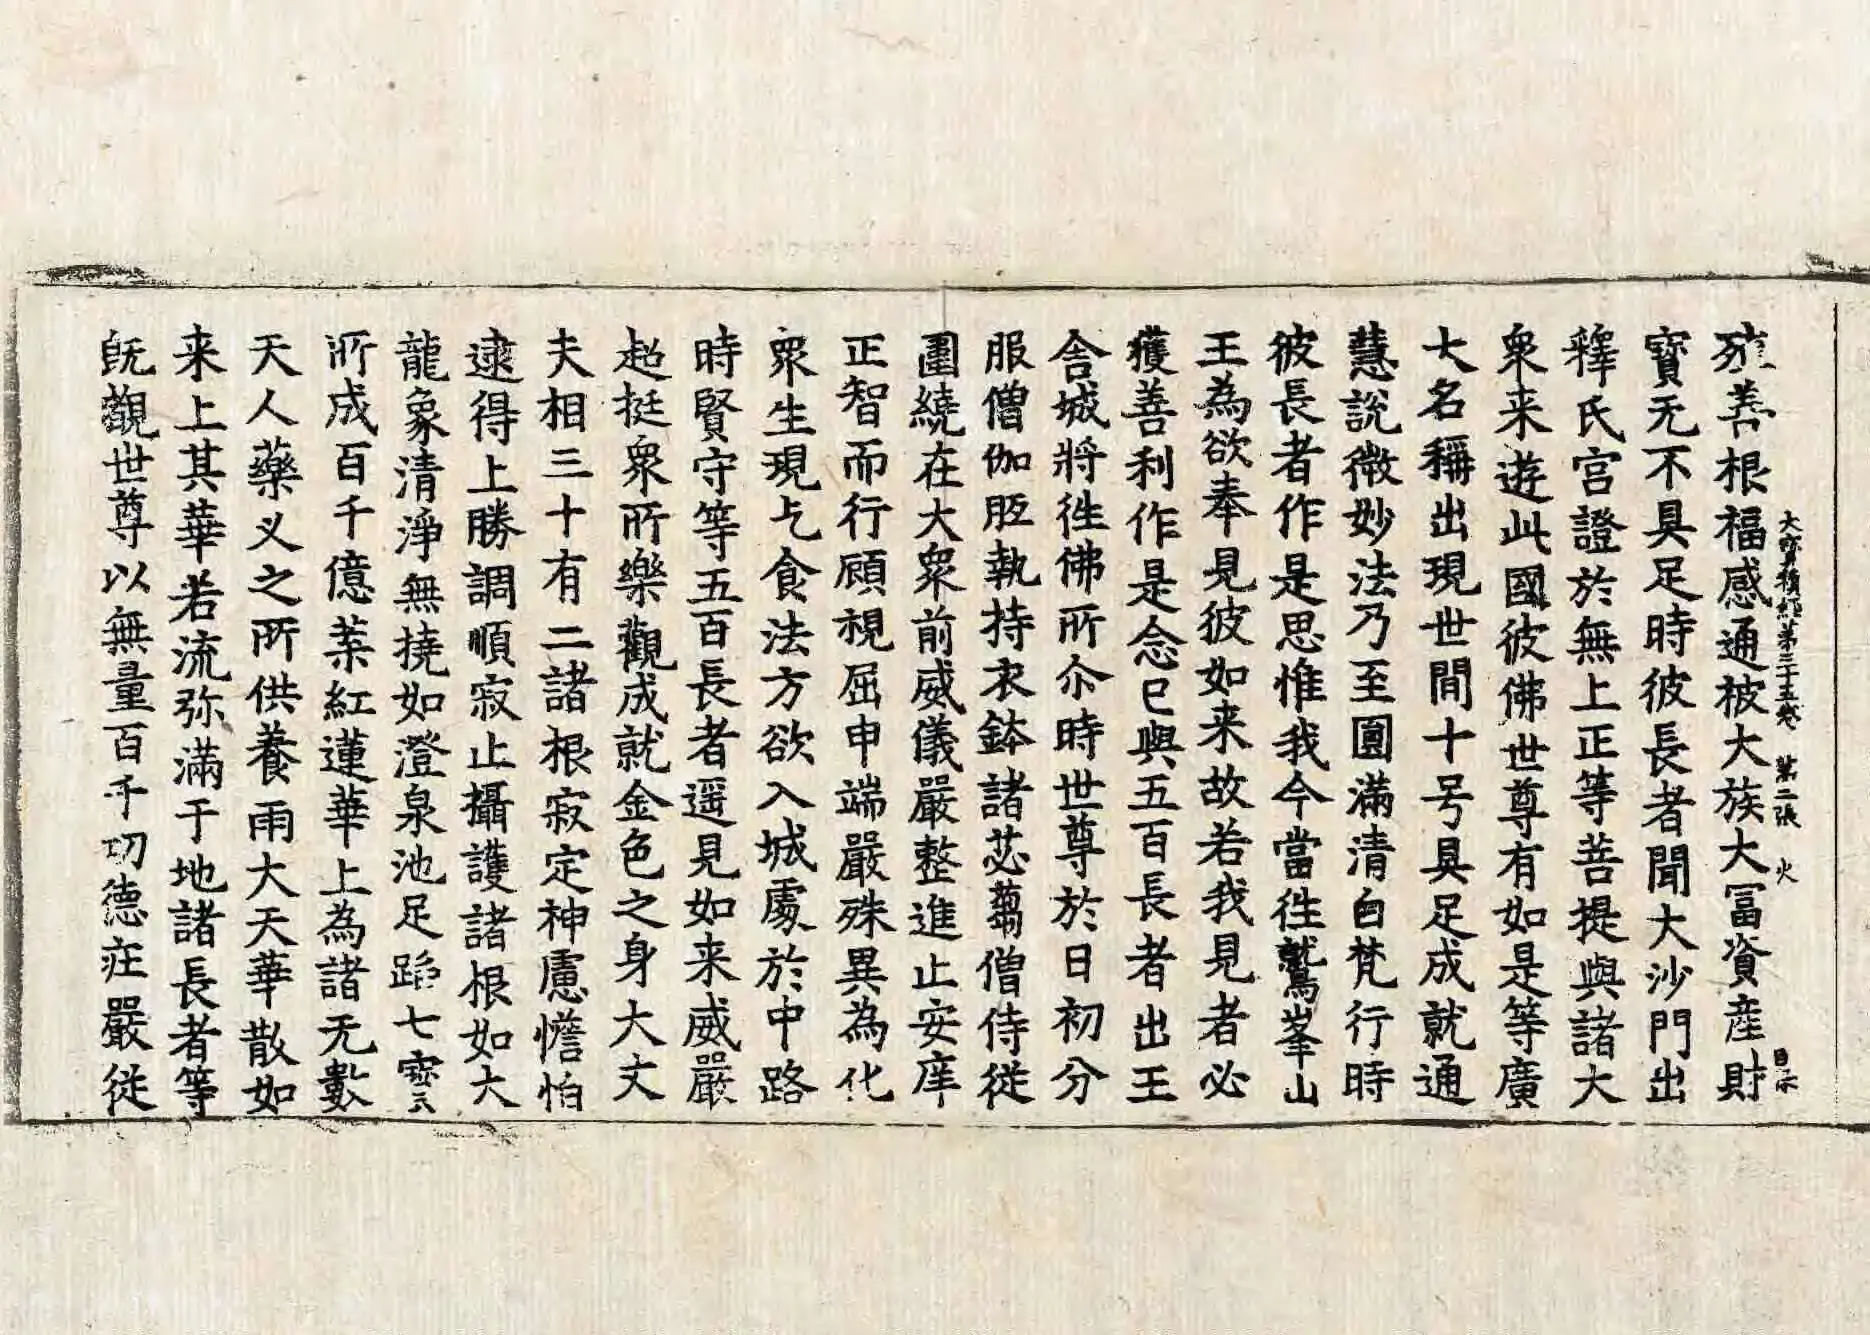 大寶積經第三十五卷　第二張　火
殖善根福感通被大族大冨資產財
寶无不具足時彼長者聞大沙門出
釋氏宮證於無上正等菩提與諸大
衆来遊此國彼佛世尊有如是等廣
大名稱出現世間十号具足成就通
慧說微妙法乃至圓滿清白梵行時
彼長者作是思惟我今當徃鷲峯山
王為欲奉見彼如来故若我見者必
獲善利作是念已與五百長者出王
舍城將徃佛所尒時世尊於日初分
服僧伽胝執持衣鉢諸苾蒭僧侍從
圍繞在大衆前威儀嚴整進止安庠
正智而行顧視屈申端嚴殊異為化
衆生現乞食法方欲入城處於中路
時賢守等五百長者遥見如来威嚴
超挺衆所樂觀成就金色之身大丈
夫相三十有二諸根寂定神慮憺怕
逮得上勝調順寂止攝護諸根如大
龍象清淨無撓如澄泉池足蹈七寶
所成百千億葉紅蓮華上為諸无數
天人藥义之所供養雨大天華散如
来上其華若流弥滿于地諸長者等
旣觀世尊以無量百千功德莊嚴從